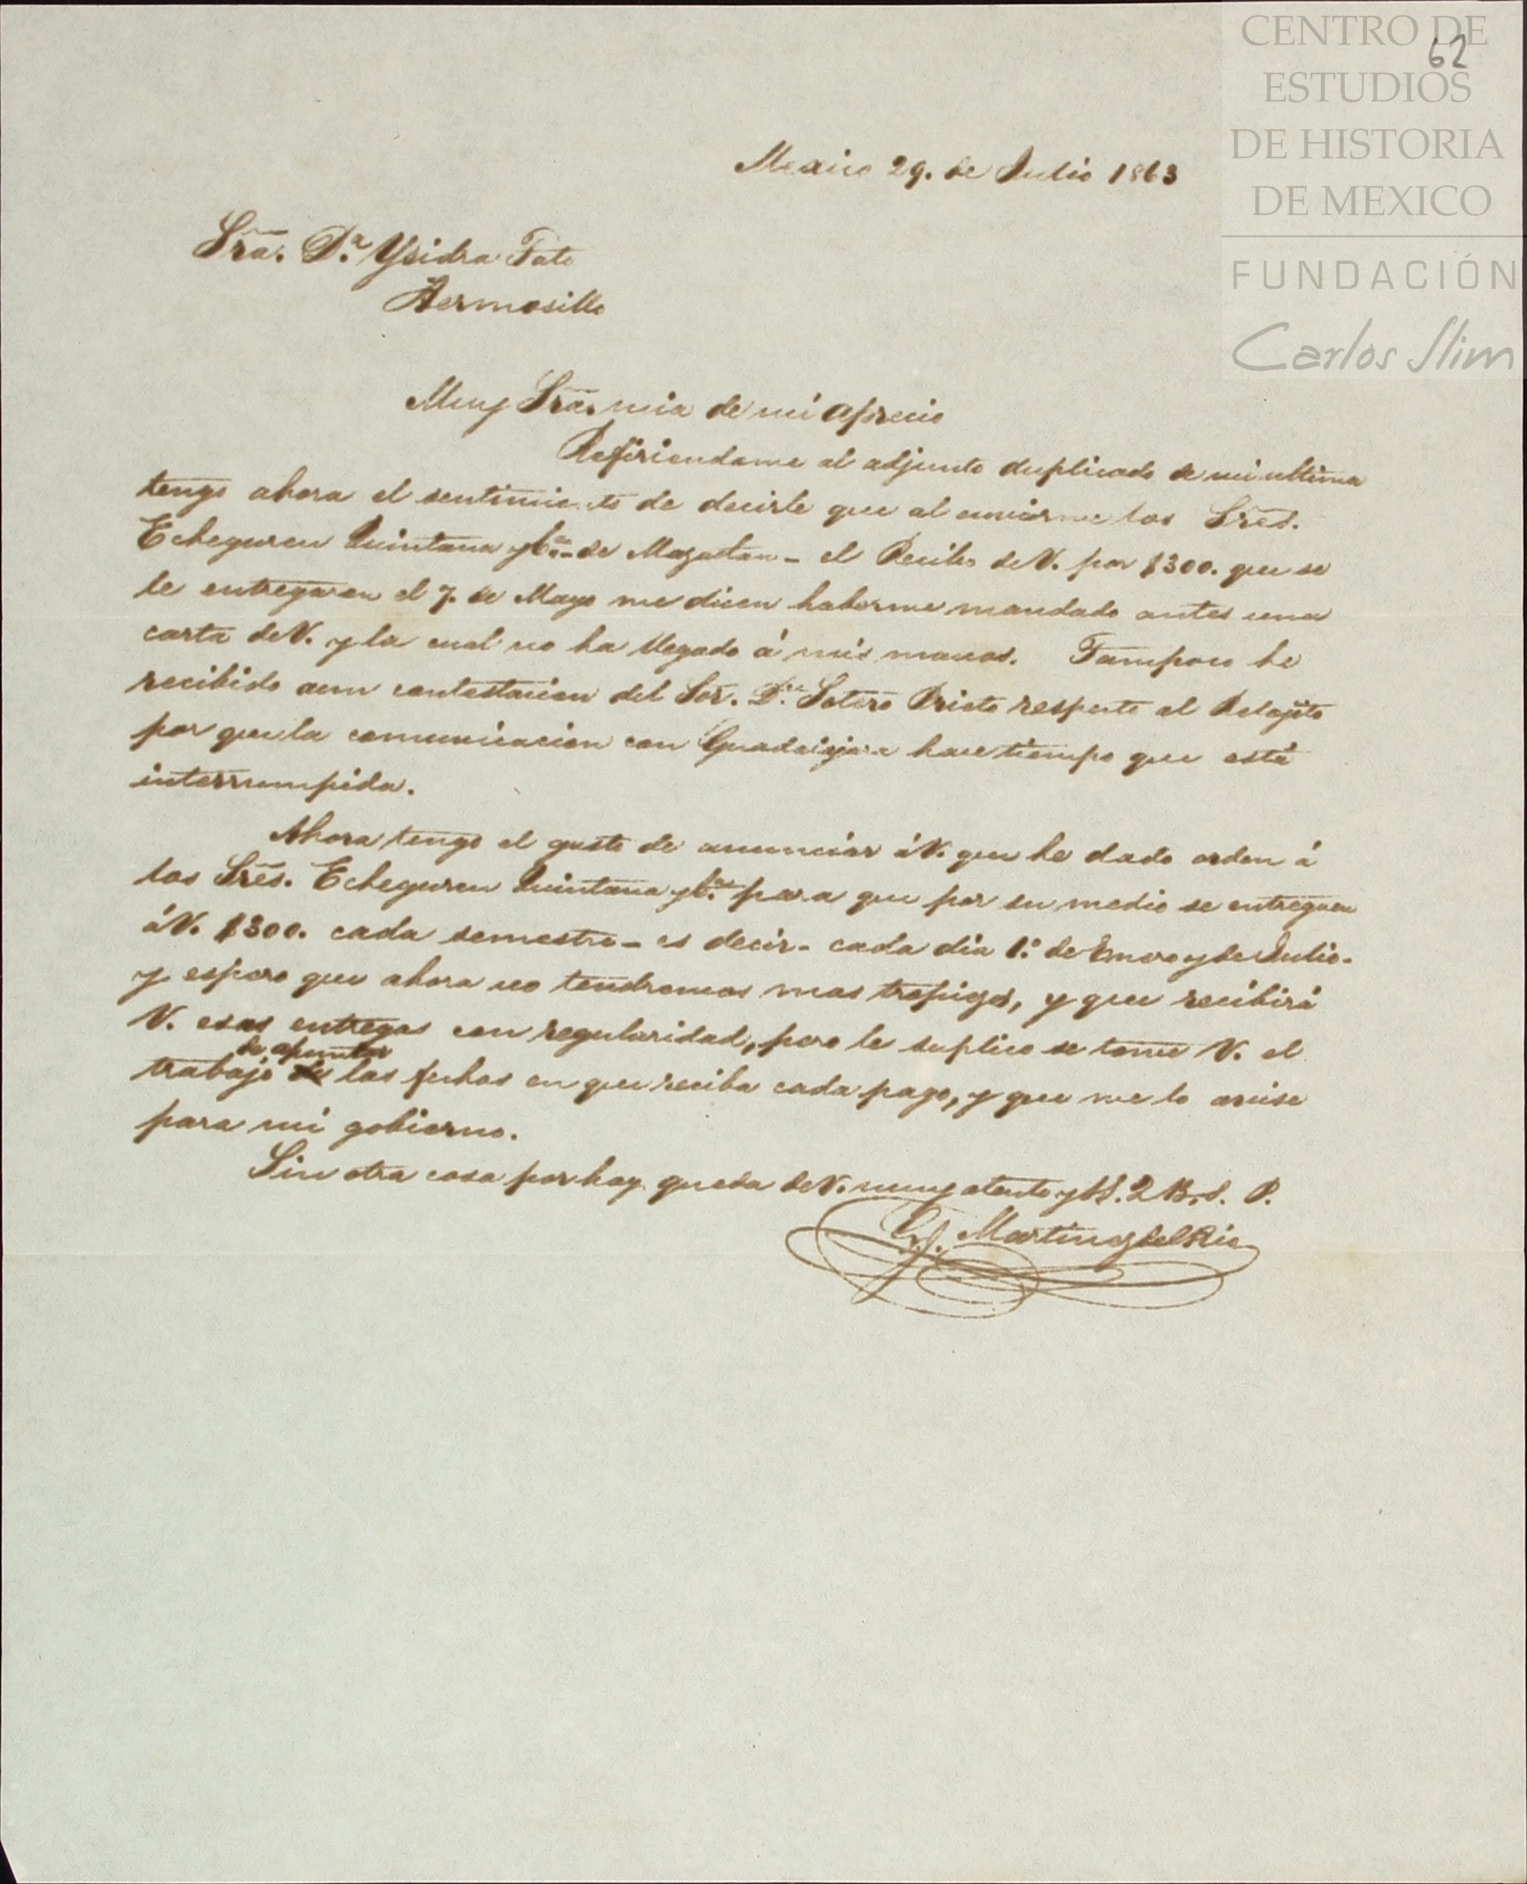 CENTRO DE
ESTUDIOS
DE HISTORIA
DE MEXICO
FUNDACIÓN
Carlos Slim
62
Mexico 29. de Julio 1863
Sra. Da. Ysidra Tato
Hermosillo
Muy Sra. mia de mi aprecio
Refiriendome al adjunto duplicado de mi ultima
tengo ahora el sentimiento de decirle que al enviarme los Sres.
Echeguren Quintana y Ca. de Mazatlan - el Recibo de V. por $300. que se
le entregaron el 7. de Mayo me dicen haberme mandado antes una
carta de V. y la cual no ha llegado á mis manos. Tampoco he
recibido aun contestacion del Sor. Dn. Sotero Prieto respecto al Relojito
por que la comunicacion con Guadalajara hace tiempo que está
interrumpida.
Ahora tengo el gusto de anunciar á V. que he dado orden á
los Sres. Echeguren Quintana y Ca. para que por su medio se entreguen
á V. $300. cada semestre - es decir - cada dia 1º. de Enero y de Julio -
y espero que ahora no tendremos mas tropiezos, y que recibirá
V. esas entregas con regularidad, pero le suplico se tome V. el
de apuntar
trabajo las fechas en que reciba cada pago, y que me lo avise
para mi gobierno.
Sin otra cosa por hoy queda de V. muy atento y S.S. Q. B. S. P.
Martinez del Rio